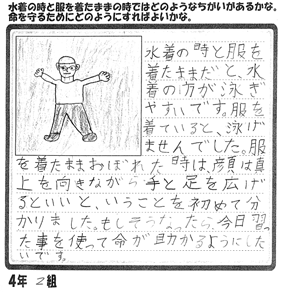 水着の時と服を着たままの時ではどのようなちがいがあるかな。
命を守るためにどのようにすればよいかな。
水着の時と服を
着たままだと、水
着の方が泳ぎ
やすいです。服を
着ていると、泳げ
ませんでした。服
を着たままおぼれた時は、顔は真
上を向きながら手と足を広げ
るといいと、いうことを初めて分
かりました。もしそうなったら、今日習っ
た事を使って命が助かるようにした
いです。
4年 2組